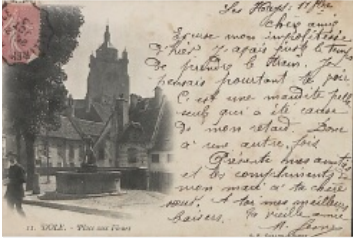 11 7bre
Cher ami
Excuse mon impolitesse
d'hier. J'avais juste le temps
de prendre le train. Je
pensais pourtant te voir
C'est une maudite
seule qui a été cause
de mon retard. Donc
à une autre fois.
Présente mes amitiés
et les compliments de
mon mari à ta chère
sœur. A toi mes meilleurs
baisers.
Ta vieille amie
11. DOLE. - Place aux Fleurs